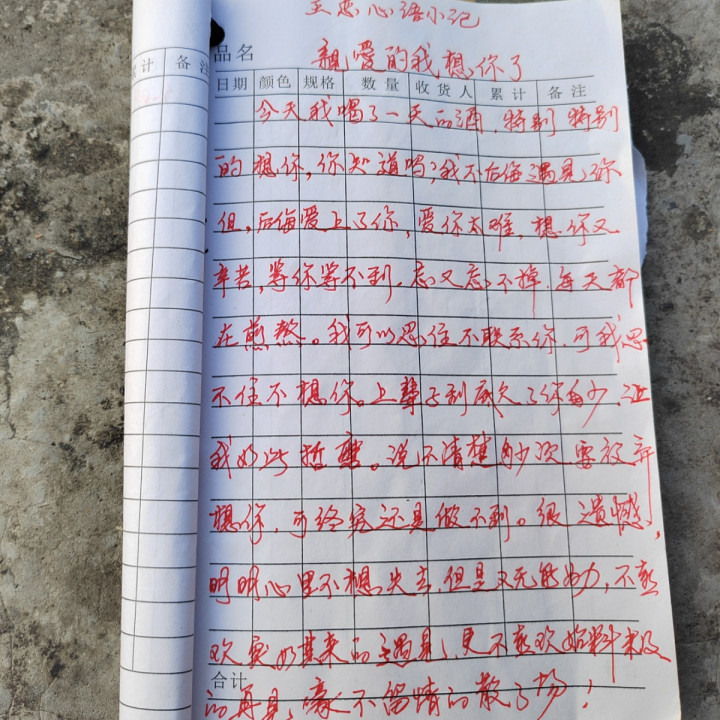 王恋心语小记
品名
亲爱的我想你了
累计 备注
日期 颜色 规格 数量 收货人 累计 备注
今天我喝了一天的酒，特别特别
的想你，你知道吗？我不后悔遇见你
但，后悔爱上了你，爱你太难，想你又
辛苦，等你等不到，忘又忘不掉，每天都
在煎熬。我可以忍住不联系你，可我忍
不住不想你。上辈子到底欠了你多少，让
我如此折磨。说不清楚多少次要放弃
想你，可终究还是做不到。很遗憾，
明明心里不想失去，但是又无能为力，不喜
欢突如其来的遇见，更不喜欢始料未及
合计
的再见，毫不留情的散了场！